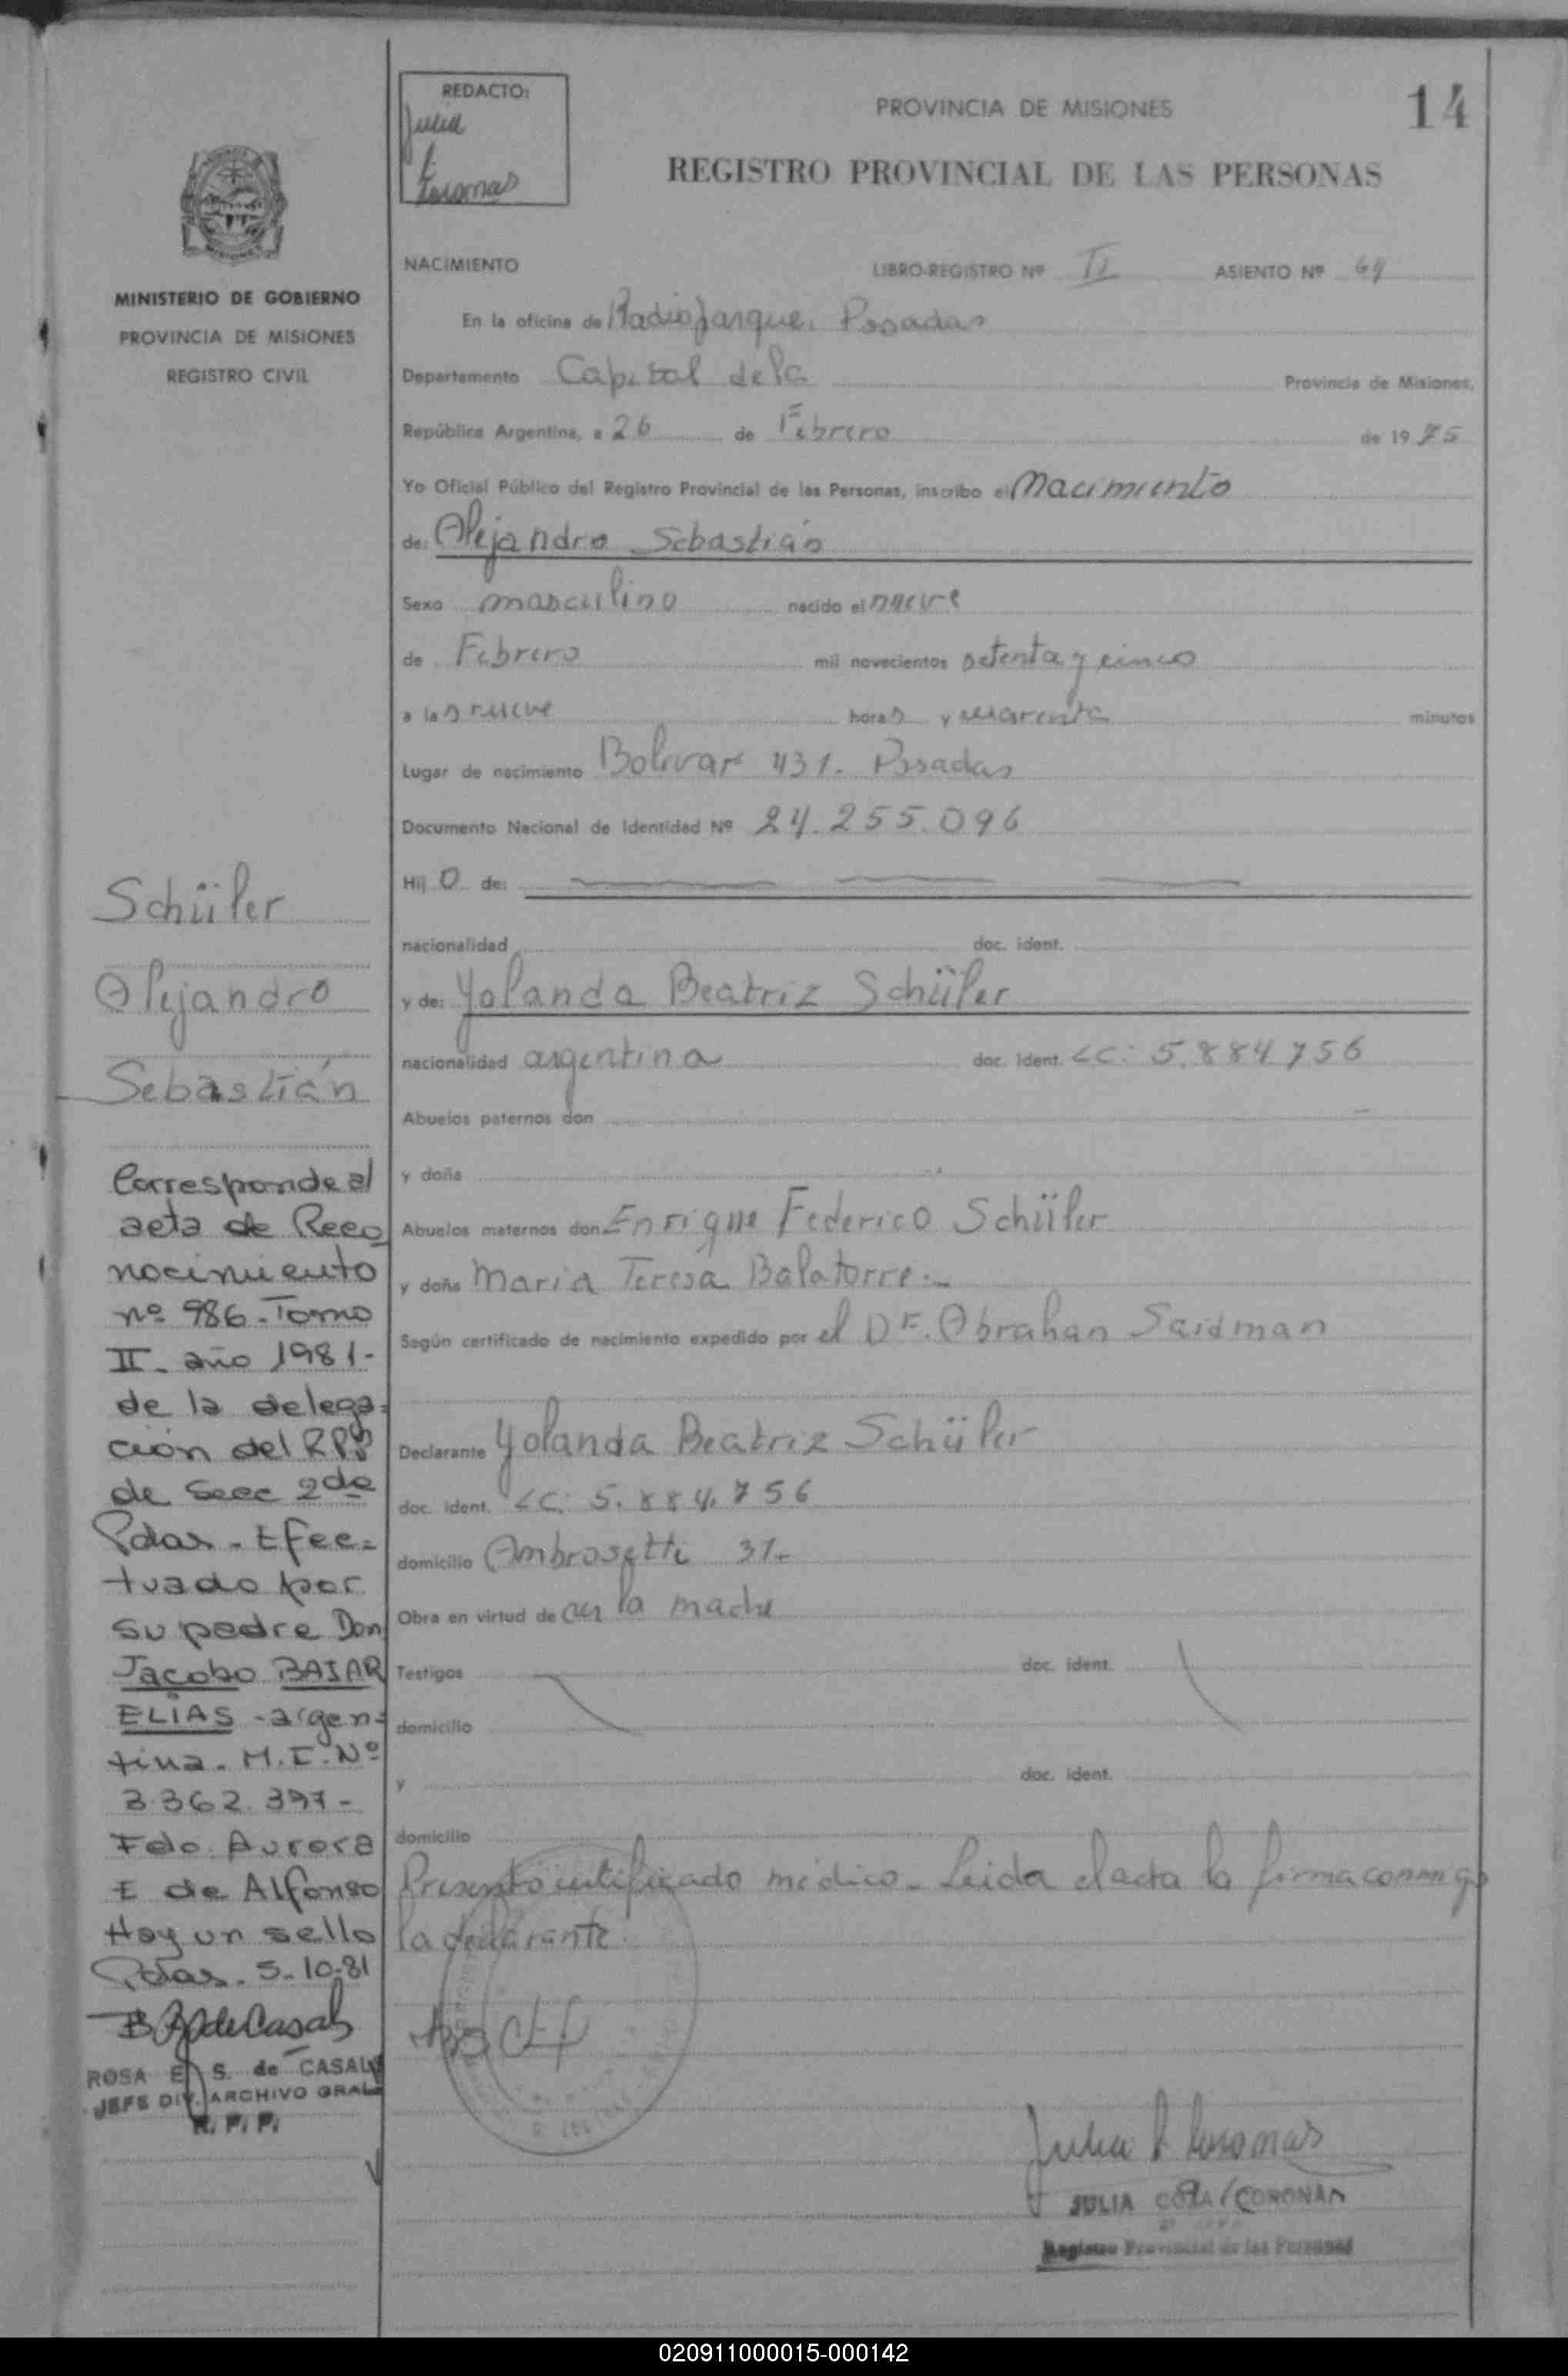 REDACTO:
Julia
Coronas
PROVINCIA DE MISIONES
14
REGISTRO PROVINCIAL DE LAS PERSONAS
MINISTERIO DE GOBIERNO
PROVINCIA DE MISIONES
REGISTRO CIVIL
NACIMIENTO LIBRO-REGISTRO Nº II ASIENTO Nº
En la oficina de Posadas
Departamento Capital de la Provincia de Misiones,
República Argentina, a 26 de Febrero de 19 75
Yo Oficial Público del Registro Provincial de las Personas, inscribo el Nacimiento
de: Alejandro Sebastián
Sexo masculino nacido el nueve
de Febrero mil novecientos setenta y cinco
a las nueve horas y cuarenta minutos
Lugar de nacimiento Bolivar 431. Posadas
Documento Nacional de Identidad Nº 24.255.096
Hijo de:
nacionalidad doc. ident.
y de: Yolanda Beatriz Schüler
nacionalidad argentina doc. ident. LC: 5.884.756
Abuelos paternos don
y doña
Abuelos maternos don Enrique Federico Schüler
y doña Maria Teresa Balatorre.-
Según certificado de nacimiento expedido por el Dr. Abrahan Saidman
Declarante Yolanda Beatriz Schüler
doc. ident. LC: 5.884.756
domicilio Ambrosetti 31-
Obra en virtud de ser la madre
Testigos doc. ident.
domicilio
y doc. ident.
domicilio
Presento certificado médico. Leida el acta la firma conmigo
la declarante.
Julia Coronas
JULIA CORONAS
Registro Provincial de las Personas
Schüler
Alejandro
Sebastián
Corresponde al
acta de Reco
nocimiento
nº 986-Tomo
II- año 1981-
de la delega=
ción del RPP
de Secc 2da
Pdas. Efec=
tuado por
su padre Don
Jacobo BAJAR
ELIAS - argen=
tina. M.I. Nº
3.362.397-
Fdo. Aurora
E de Alfonso
Hay un sello
Pdas. 5-10-81
ROSA E. S. de CASALS
JEFE DIV. ARCHIVO GRAL
R. P. P.
020911000015-000142